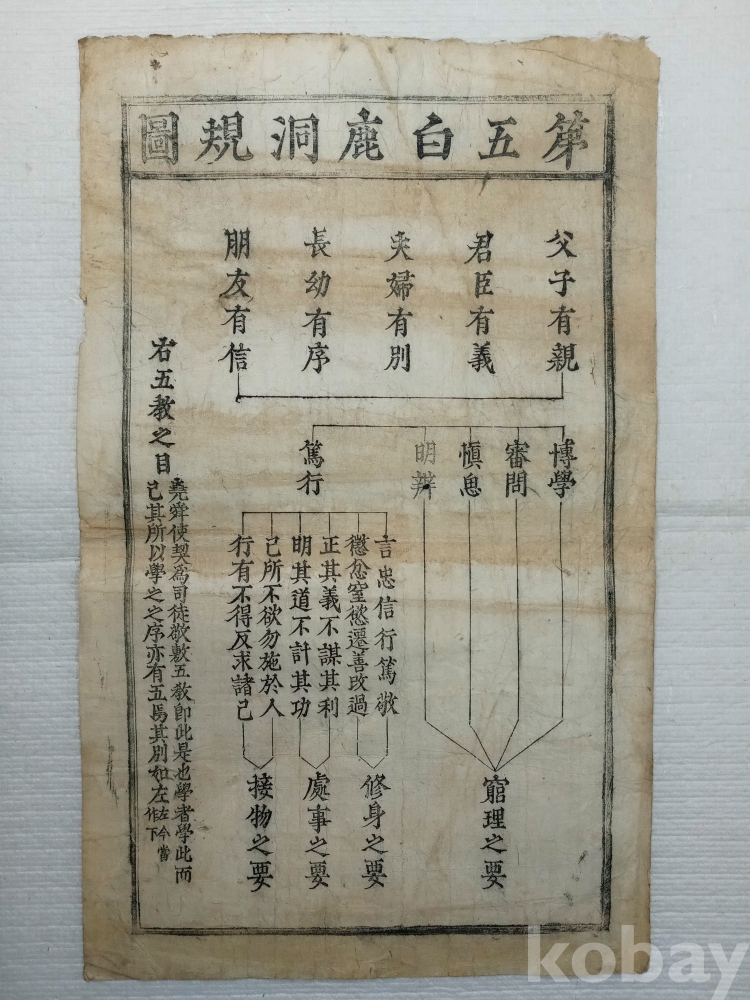 第五白鹿洞規圖
父子有親
君臣有義
夫婦有別
長幼有序
朋友有信
右五教之目
堯舜使契爲司徒敬敷五教即此是也學者學此而
已其所以學之之序亦有五焉其別如左左今當作下
博學
審問
愼思
明辨
篤行
言忠信行篤敬
懲忿窒慾遷善改過
正其義不謀其利
明其道不計其功
己所不欲勿施於人
行有不得反求諸己
窮理之要
修身之要
處事之要
接物之要
kobay